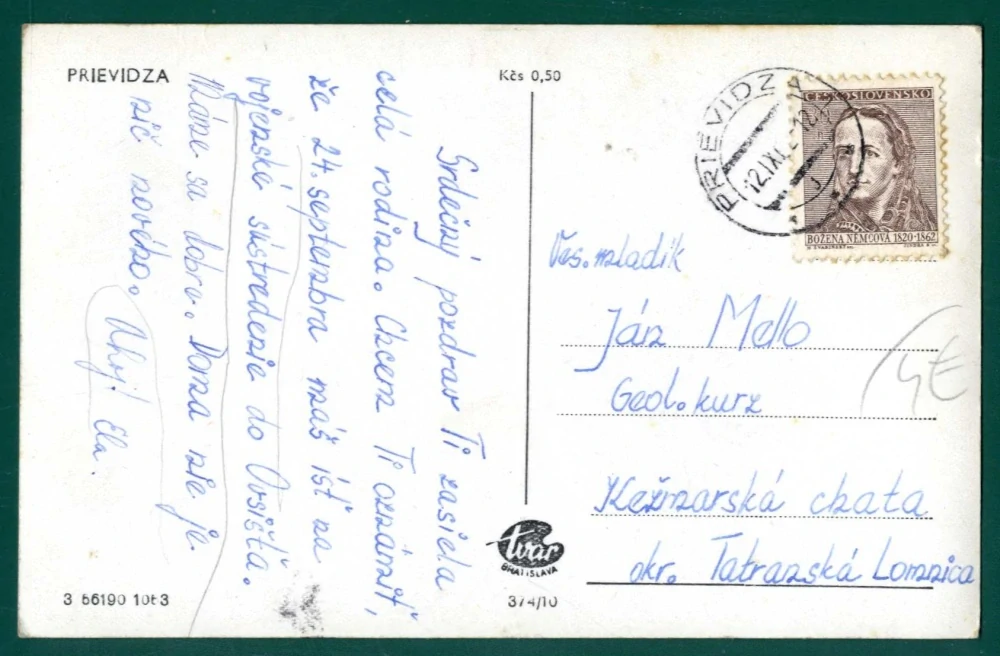 PRIEVIDZA
Srdečný pozdrav Ti zasiela
celá rodina. Chcem Ti oznámiť,
že 24. septembra máš ísť na
vojenské sústredenie do
Máme sa dobre. Doma nie je
nič nového. Ahoj! Ela.
3 66190 1063
Kčs 0,50
tvar
BRATISLAVA
374/10
PRIEVIDZA
12.IX.
ČESKOSLOVENSKO
BOŽENA NĚMCOVÁ 1820-1862
Váš. mladík
Ján Mello
Geol. kurz
Kežmarská chata
okr. Tatranská Lomnica
4€